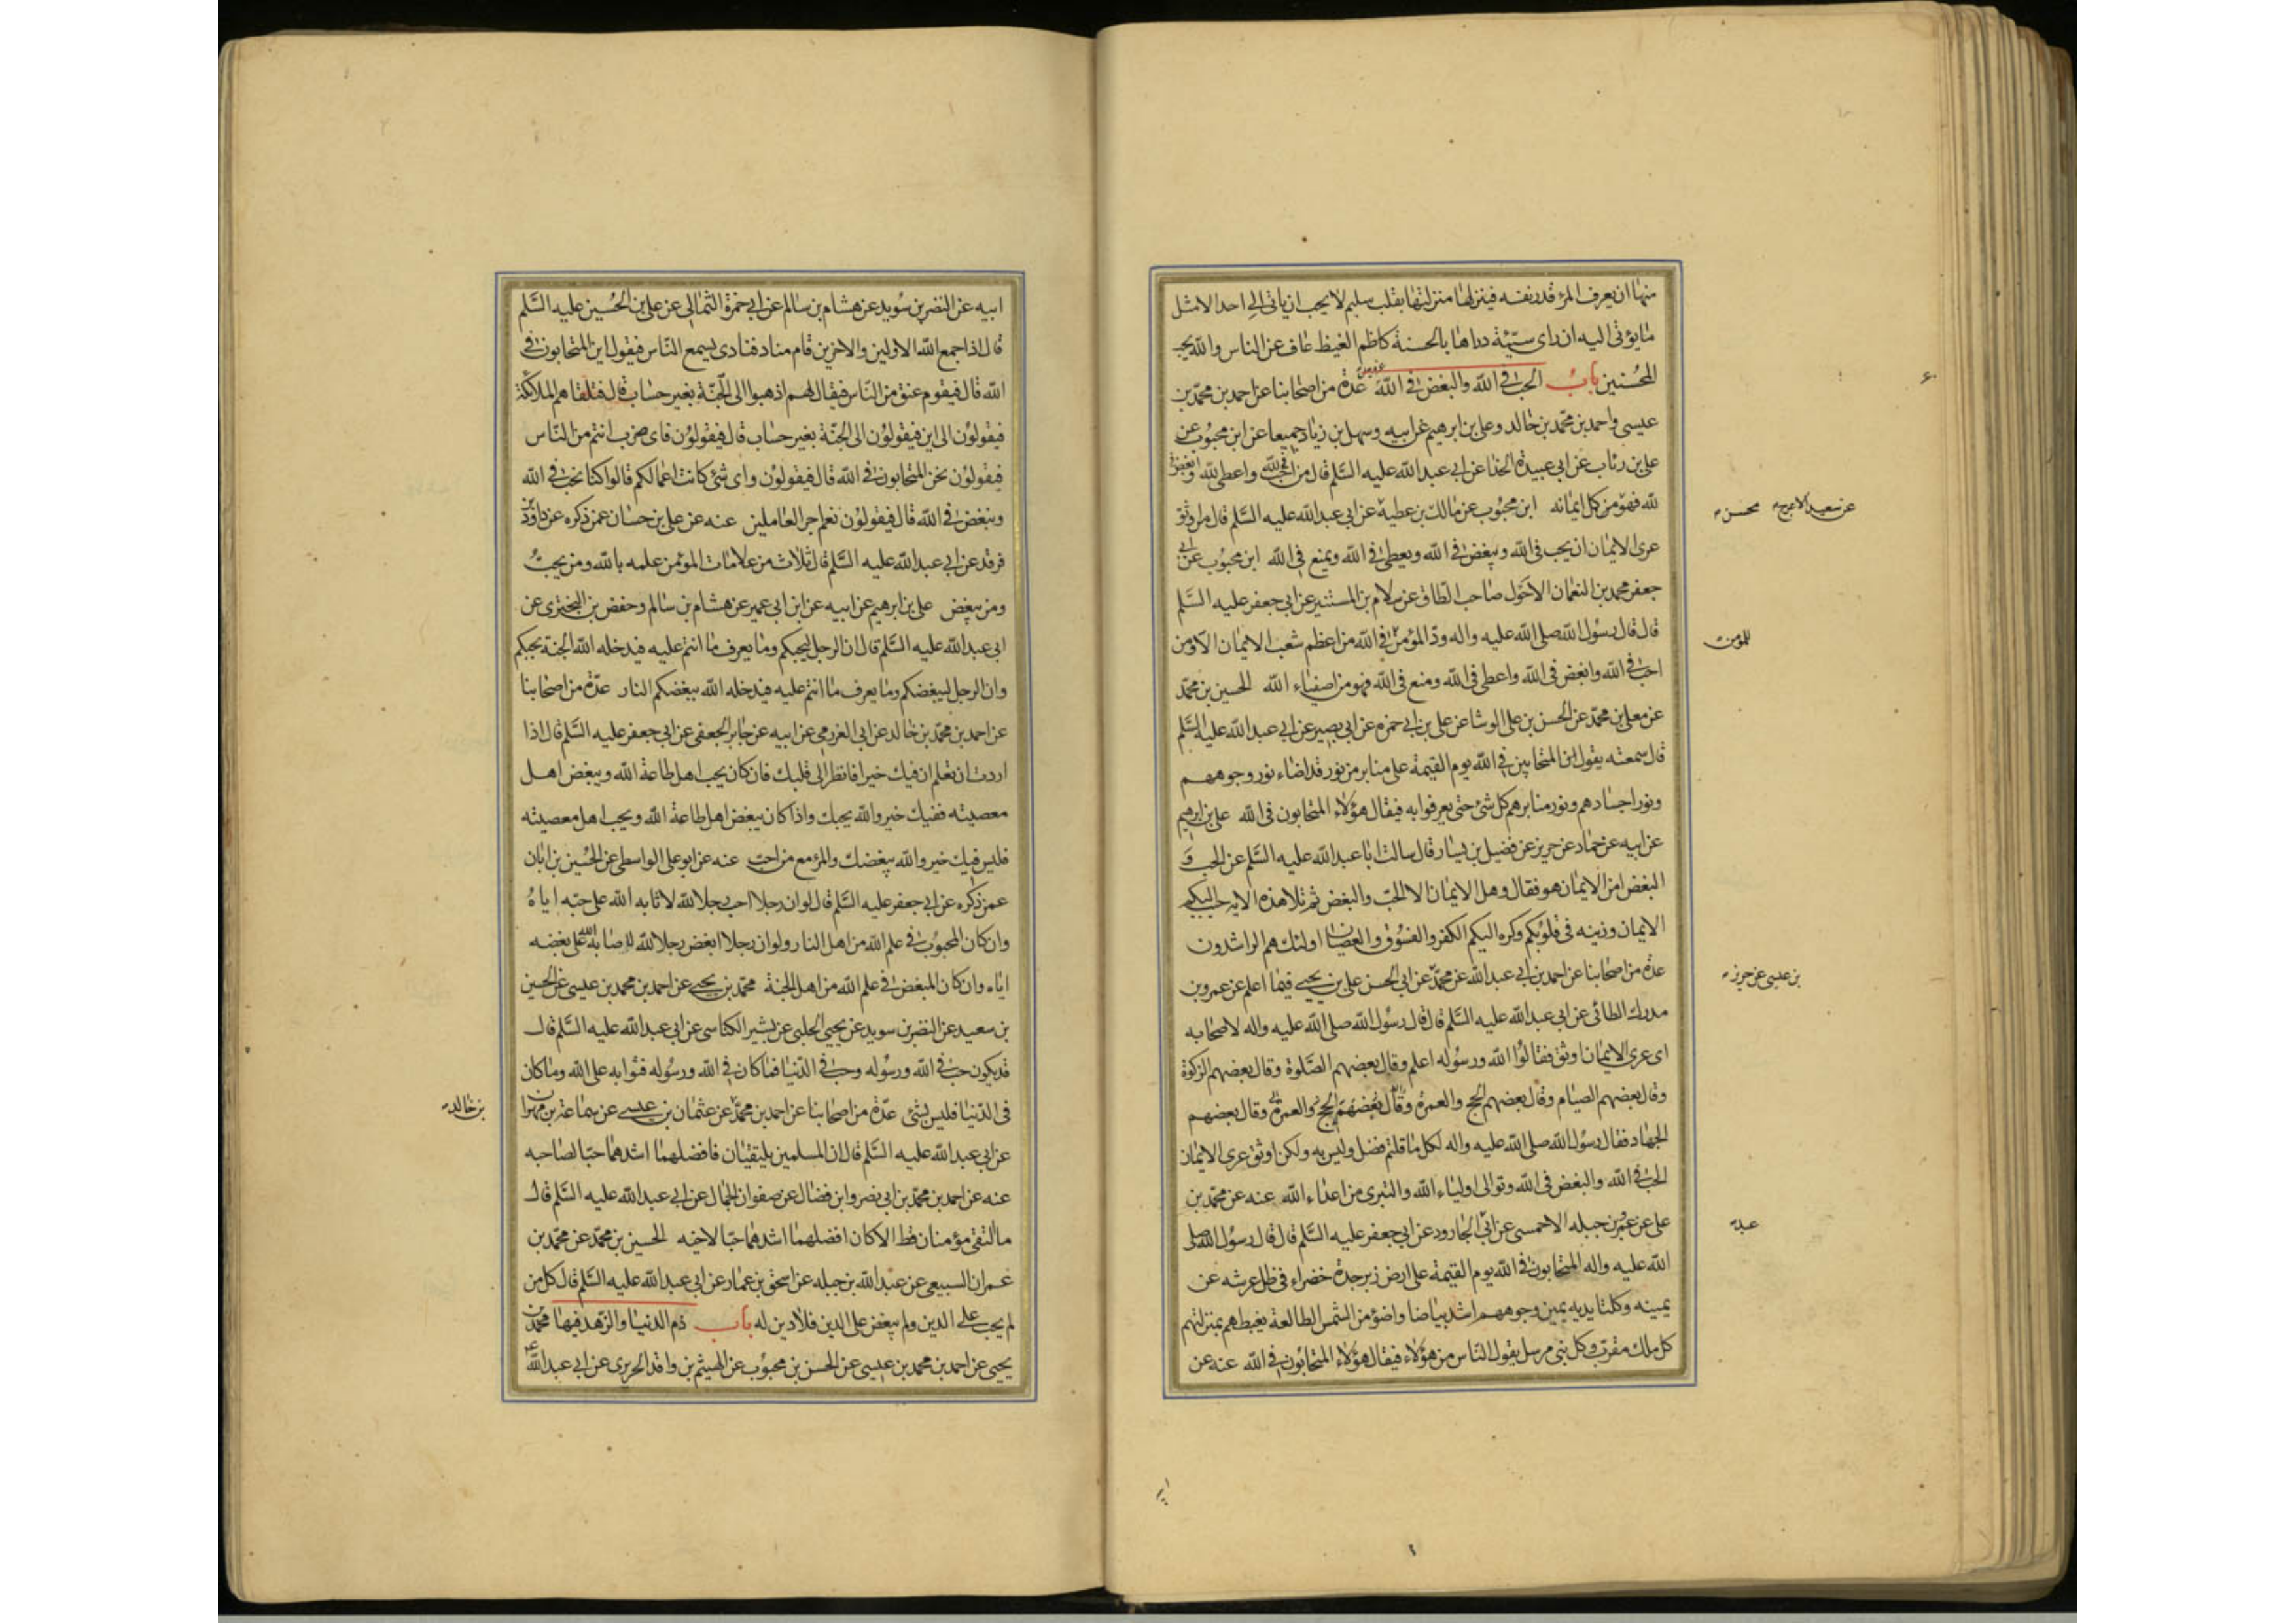 منها ان يعرف المرء قدر نفسه فينزلها منزلتها بقلب سليم لا يحب ان ياتى الى احد الا مثل
ما يؤتى اليه ان راى سيّئة دراها بالحسنة كاظم الغيظ عاف عن الناس والله يحب
المحسنين باب الحب فى الله والبغض فى الله عدة من اصحابنا عن احمد بن محمّد بن
عيسى واحمد بن محمّد بن خالد وعلى بن ابرهيم عن ابيه وسهل بن زياد جميعا عن ابن محبوب عن
على بن رئاب عن ابى عبيدة الحذا عن ابى عبد الله عليه السّلم قال من احب لله وابغض لله واعطى
لله فهو ممن كل ايمانه ابن محبوب عن مالك بن عطية عن ابى عبد الله عليه السّلم قال من اوثق
عن سعيد الاعرج
محسن
عرى الايمان ان يحب فى الله ويبغض فى الله ويعطى فى الله ويمنع فى الله ابن محبوب عن ابى
جعفر محمد بن النعمان الاحول صاحب الطّاق عن سلام بن المستنير عن ابى جعفر عليه السّلم
قال قال رسول الله صلى الله عليه واله ودّ المؤمن فى الله من اعظم شعب الايمان الا ومن
للمومن
احب فى الله وابغض فى الله واعطى فى الله ومنع فى الله فهو من اصفياء الله الحسين بن محمّد
عن معلى بن محمّد عن الحسن بن على الوشا عن على بن ابى حمزه عن ابى بصير عن ابى عبد الله عليه السّلم
قال سمعته يقول ان المتحابين فى الله يوم القيمة على منابر من نور قد اضاء نور وجوههم
ونور اجسادهم ونور منابرهم كل شئ حتى يعرفوا به فيقال هؤلاء المتحابون فى الله على بن ابرهيم
عن ابيه عن حماد عن حريز عن فضيل بن يسار قال سالت ابا عبد الله عليه السّلم عن الحب و
البغض امن الايمان هو فقال وهل الايمان الا الحبّ والبغض ثم تلا هذه الايه حبب اليكم
الايمان وزينه فى قلوبكم وكره اليكم الكفر والفسوق والعصيان اولئك هم الراشدون
عدة من اصحابنا عن احمد بن ابى عبد الله عن محمّد عن ابى الحسن على بن يحيى فيما اعلم عن عمرو بن
بن عيسى عن حريز
مدرك الطائى عن ابى عبد الله عليه السّلم قال قال رسول الله صلى الله عليه واله لاصحابه
اى عرى الايمان اوثق فقالوا الله ورسوله اعلم وقال بعضهم الصّلوة وقال بعضهم الزكوة
وقال بعضهم الصيام وقال بعضهم الحج والعمرة وقال بعضهم الحج والعمرة وقال بعضهم
الجهاد فقال رسول الله صلى الله عليه واله لكل ما قلتم فضل وليس به ولكن اوثق عرى الايمان
الحب فى الله والبغض فى الله وتوالى اولياء الله والتبرى من اعداء الله عنه عن محمّد بن
على عن عمر بن جبله الاحمسى عن ابى الجارود عن ابى جعفر عليه السّلم قال قال رسول الله صلى
الله عليه واله المتحابون فى الله يوم القيمة على ارض زبرجدة خضراء فى ظل عرشه عن
يمينه وكلتا يديه يمين وجوههم اشد بياضا واضوء من الشمس الطالعة يغبطهم بمنزلتهم
كل ملك مقرب وكل نبى مرسل يقول الناس من هؤلاء فيقال هؤلاء المتحابون فى الله عنه عن
ابيه عن النضر بن سويد عن هشام بن سالم عن ابى حمزة الثمالى عن على بن الحسين عليه السّلم
قال اذا جمع الله الاولين والاخرين قام مناد فنادى يسمع النّاس فيقول اين المتحابون فى
الله قال فيقوم عنق من النّاس فيقال لهم اذهبوا الى الجنّة بغير حساب قال فتلقاهم الملائكة
فيقولون الى اين فيقولون الى الجنّة بغير حساب قال فيقولون فاى ضرب انتم من النّاس
فيقولون نحن المتحابون فى الله قال فيقولون واى شئ كانت اعمالكم قالوا كنا نحب فى الله
ونبغض فى الله قال فيقولون نعم اجر العاملين عنه عن على بن حسان عمن ذكره عن داود بن
فرقد عن ابى عبد الله عليه السّلم قال ثلاث من علامات المؤمن علمه بالله ومن يحبّ
ومن يبغض على بن ابرهيم عن ابيه عن ابن ابى عمير عن هشام بن سالم وحفص بن البخترى عن
ابى عبد الله عليه السّلم قال ان الرجل ليحبكم وما يعرف ما انتم عليه فيدخله الله الجنة بحبكم
وان الرجل ليبغضكم وما يعرف ما انتم عليه فيدخله الله ببغضكم النار عدّة من اصحابنا
عن احمد بن محمّد بن خالد عن ابى العزرمى عن ابيه عن جابر الجعفى عن ابى جعفر عليه السّلم قال اذا
اردت ان تعلم ان فيك خيرا فانظر الى قلبك فان كان يحب اهل طاعة الله ويبغض اهل
معصيته ففيك خير والله يحبك واذا كان يبغض اهل طاعة الله ويحب اهل معصيته
فليس فيك خير والله يبغضك والمرء مع من احبّ عنه عن ابو على الواسطى عن الحسين بن ابان
عمن ذكره عن ابى جعفر عليه السّلم قال لو ان رجلا احب رجلا لله لاثابه الله على حبّه اياه
وان كان المحبوب فى علم الله من اهل النار ولو ان رجلا ابغض رجلا لله لاثابه الله على بغضه
اياه وان كان المبغض فى علم الله من اهل الجنة محمّد بن يحيى عن احمد بن محمد بن عيسى عن الحسين
بن سعيد عن النضر بن سويد عن يحيى الحلبى عن بشير الكناسى عن ابى عبد الله عليه السّلم قال
قد يكون حب فى الله ورسوله وحب فى الدّنيا فما كان فى الله ورسوله فثوابه على الله وما كان
فى الدّنيا فليس بشئ عدّة من اصحابنا عن احمد بن محمّد عن عثمان بن عيسى عن سماعة بن مهران
بن خالد
عن ابى عبد الله عليه السّلم قال ان المسلمين يلتقيان فافضلهما اشدهما حبّا لصاحبه
عنه عن احمد بن محمّد بن ابى نصر وابن فضال عن صفوان الجمال عن ابى عبد الله عليه السّلم قال
ما التقى مؤمنان قط الا كان افضلهما اشدهما حبّا لاخيه الحسين بن محمّد عن محمّد بن
عمران السبيعى عن عبد الله بن جبله عن اسحق بن عمار عن ابى عبد الله عليه السّلم قال كل من
لم يحب على الدين ولم يبغض على الدين فلا دين له باب ذم الدنيا والزّهد فيها محمّد بن
يحيى عن احمد بن محمد بن عيسى عن الحسن بن محبوب عن الهيثم بن واقد الحريرى عن ابى عبد الله